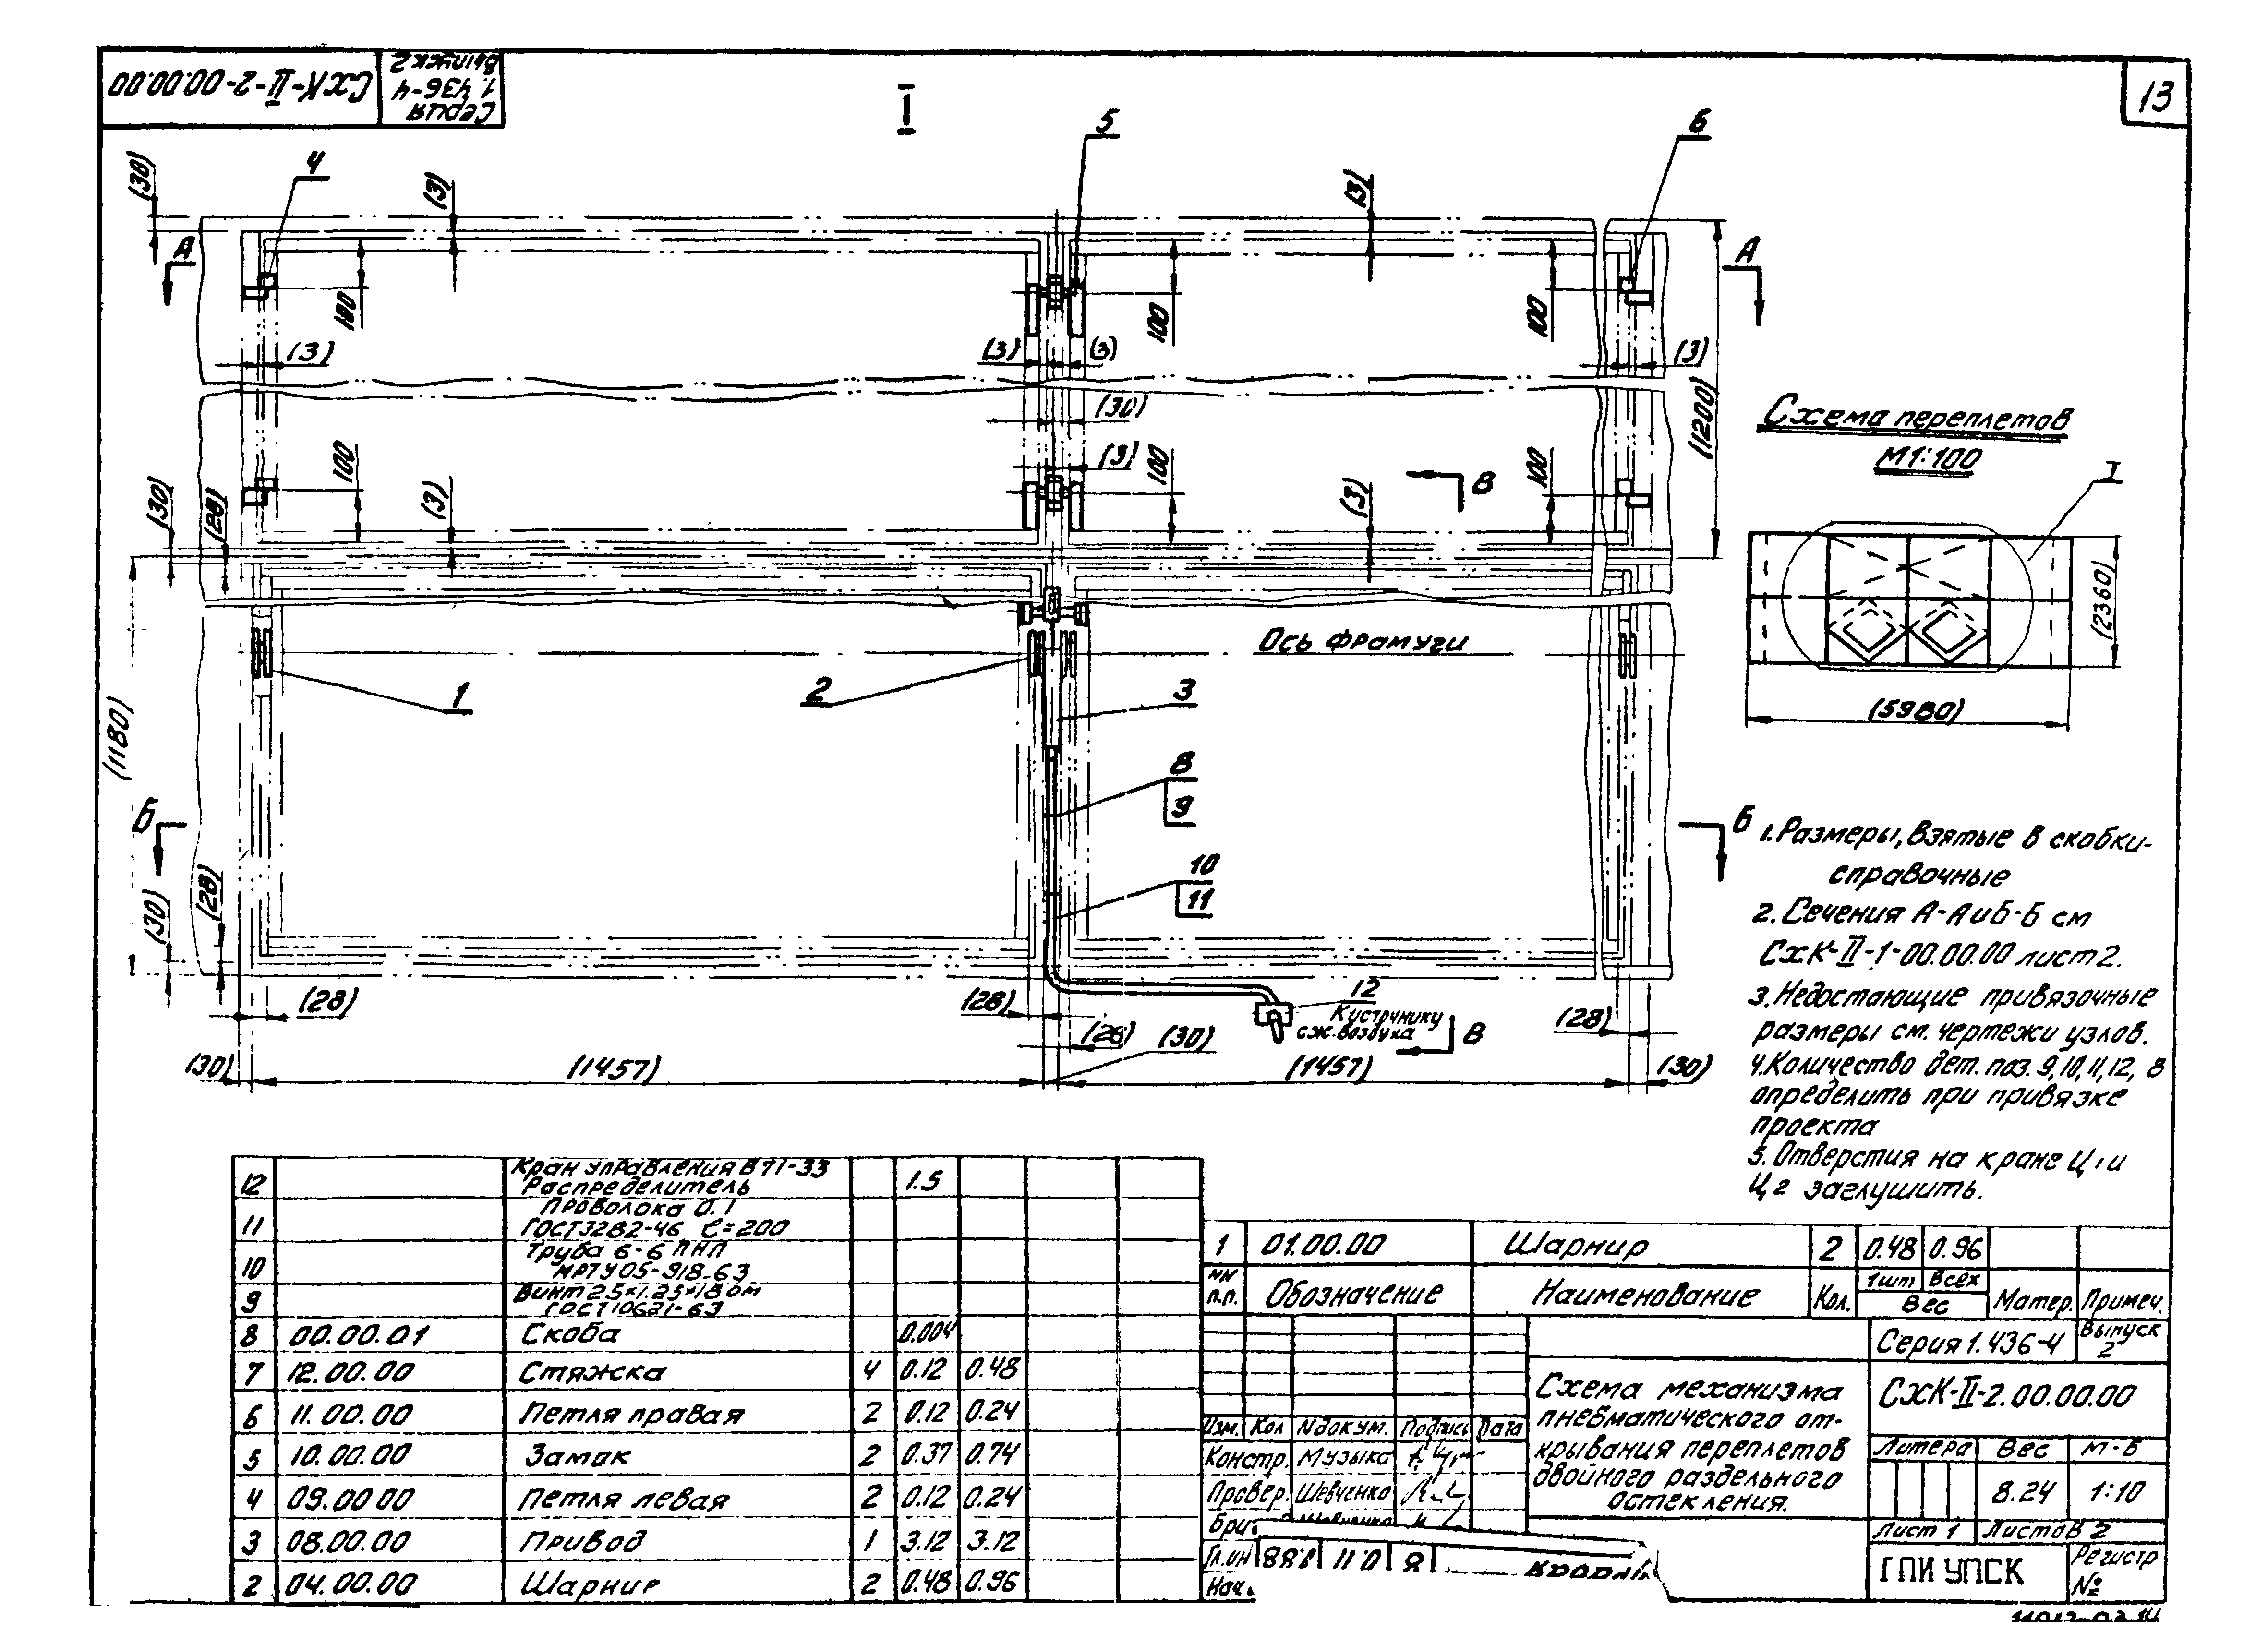 СхК-II-2-00.00.00
Серия
1.436-4
Выпуск 2
13
I
4
5
6
(30)
(3)
(3)
А
А
100
100
100
(3)
(3)
(3)
(3)
(30)
(3)
(1200)
100
100
100
В
(30)
(28)
(3)
(3)
Схема переплетов
М1:100
I
(2360)
(5980)
Ось фрамуги
1
2
3
8
9
10
11
(1180)
Б
Б
(30)
(28)
(28)
(28)
(28)
(30)
12
К источнику
сж. воздуха
В
(28)
(30)
(1457)
(1457)
(30)
1. Размеры, взятые в скобки-
справочные
2. Сечения А-А и Б-Б см
СхК-II-1-00.00.00 лист 2.
3. Недостающие привязочные
размеры см. чертежи узлов.
4. Количество дет. поз. 9, 10, 11, 12, 8
определить при привязке
проекта
5. Отверстия на кране Ц1 и
Ц2 заглушить.
12 Кран управления В71-33 1.5
Распределитель
11 Проволока 0.1
ГОСТ 3282-46 ℓ=200
10 Труба 6-6 ПНП
МРТУ 05-918-63
9 Винт 2.5×1.25×18
ГОСТ 10621-63
8 00.00.01 Скоба 0.004
7 12.00.00 Стяжка 4 0.12 0.48
6 11.00.00 Петля правая 2 0.12 0.24
5 10.00.00 Замок 2 0.37 0.74
4 09.00 00 Петля левая 2 0.12 0.24
3 08.00.00 Привод 1 3.12 3.12
2 04.00.00 Шарнир 2 0.48 0.96
1 01.00.00 Шарнир 2 0.48 0.96
NN п.п. Обозначение Наименование Кол. 1 шт Всех Вес Матер. Примеч.
Серия 1.436-4 Выпуск 2
Схема механизма
пневматического от-
крывания переплетов
двойного раздельного
остекления.
СхК-II-2.00.00.00
Изм. Кол N докум. Подпись Дата
Констр. Музыка
Провер. Шевченко
Гл.ин
Нач.
Литера Вес М-б
8.24 1:10
Лист 1 Листов 2
ГПИ УПСК
Регистр
№